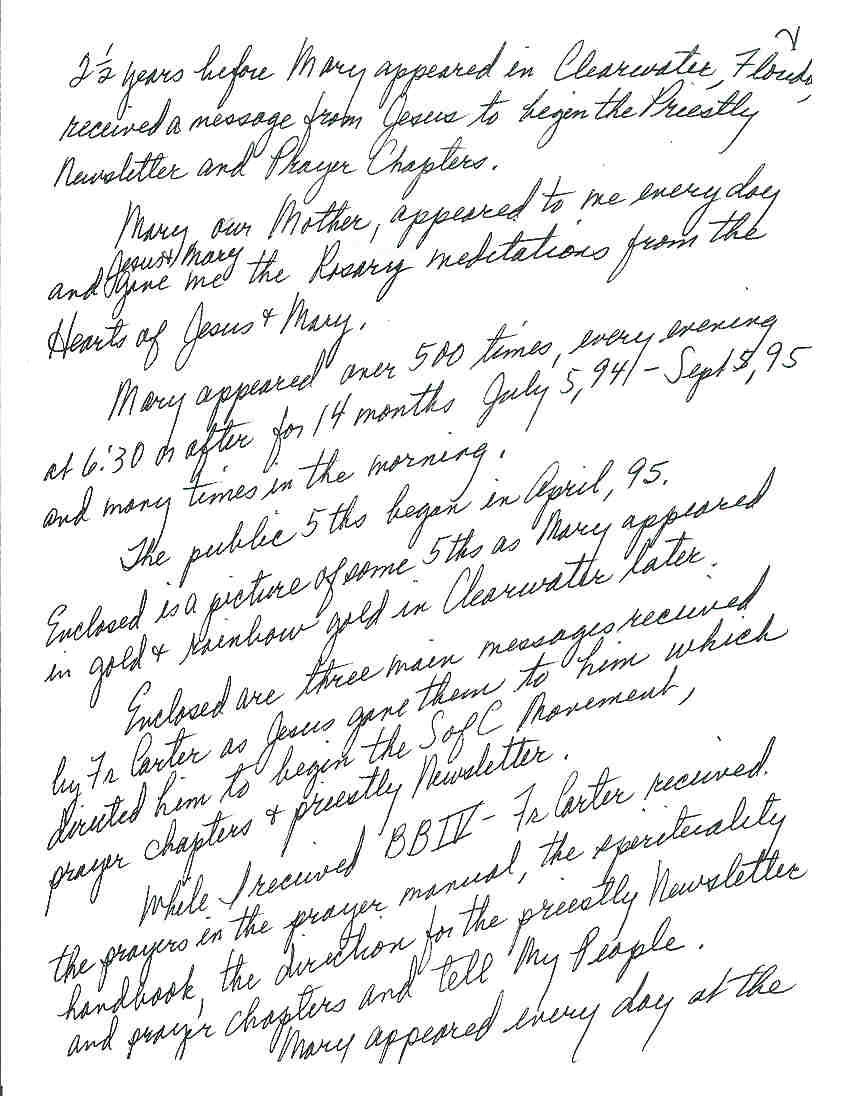 2
2½ years before Mary appeared in Clearwater, Florida,
received a message from Jesus to begin the Priestly
Newsletter and Prayer Chapters.
Mary, our Mother, appeared to me every day
Jesus & Mary
and gave me the Rosary meditations from the
Hearts of Jesus & Mary.
Mary appeared over 500 times, every evening
at 6:30 or after for 14 months July 5, 94 - Sept 5, 95
and many times in the morning.
The public 5ths began in April, 95.
Enclosed is a picture of some 5ths as Mary appeared
in gold & rainbow gold in Clearwater later.
Enclosed are three main messages received
by Fr Carter as Jesus gave them to him which
directed him to begin the S of C Movement,
prayer chapters & priestly Newsletter.
While I received BBIV - Fr Carter received
the prayers in the prayer manual, the spirituality
handbook, the direction for the priestly Newsletter
and prayer chapters and tell My People.
Mary appeared every day at the